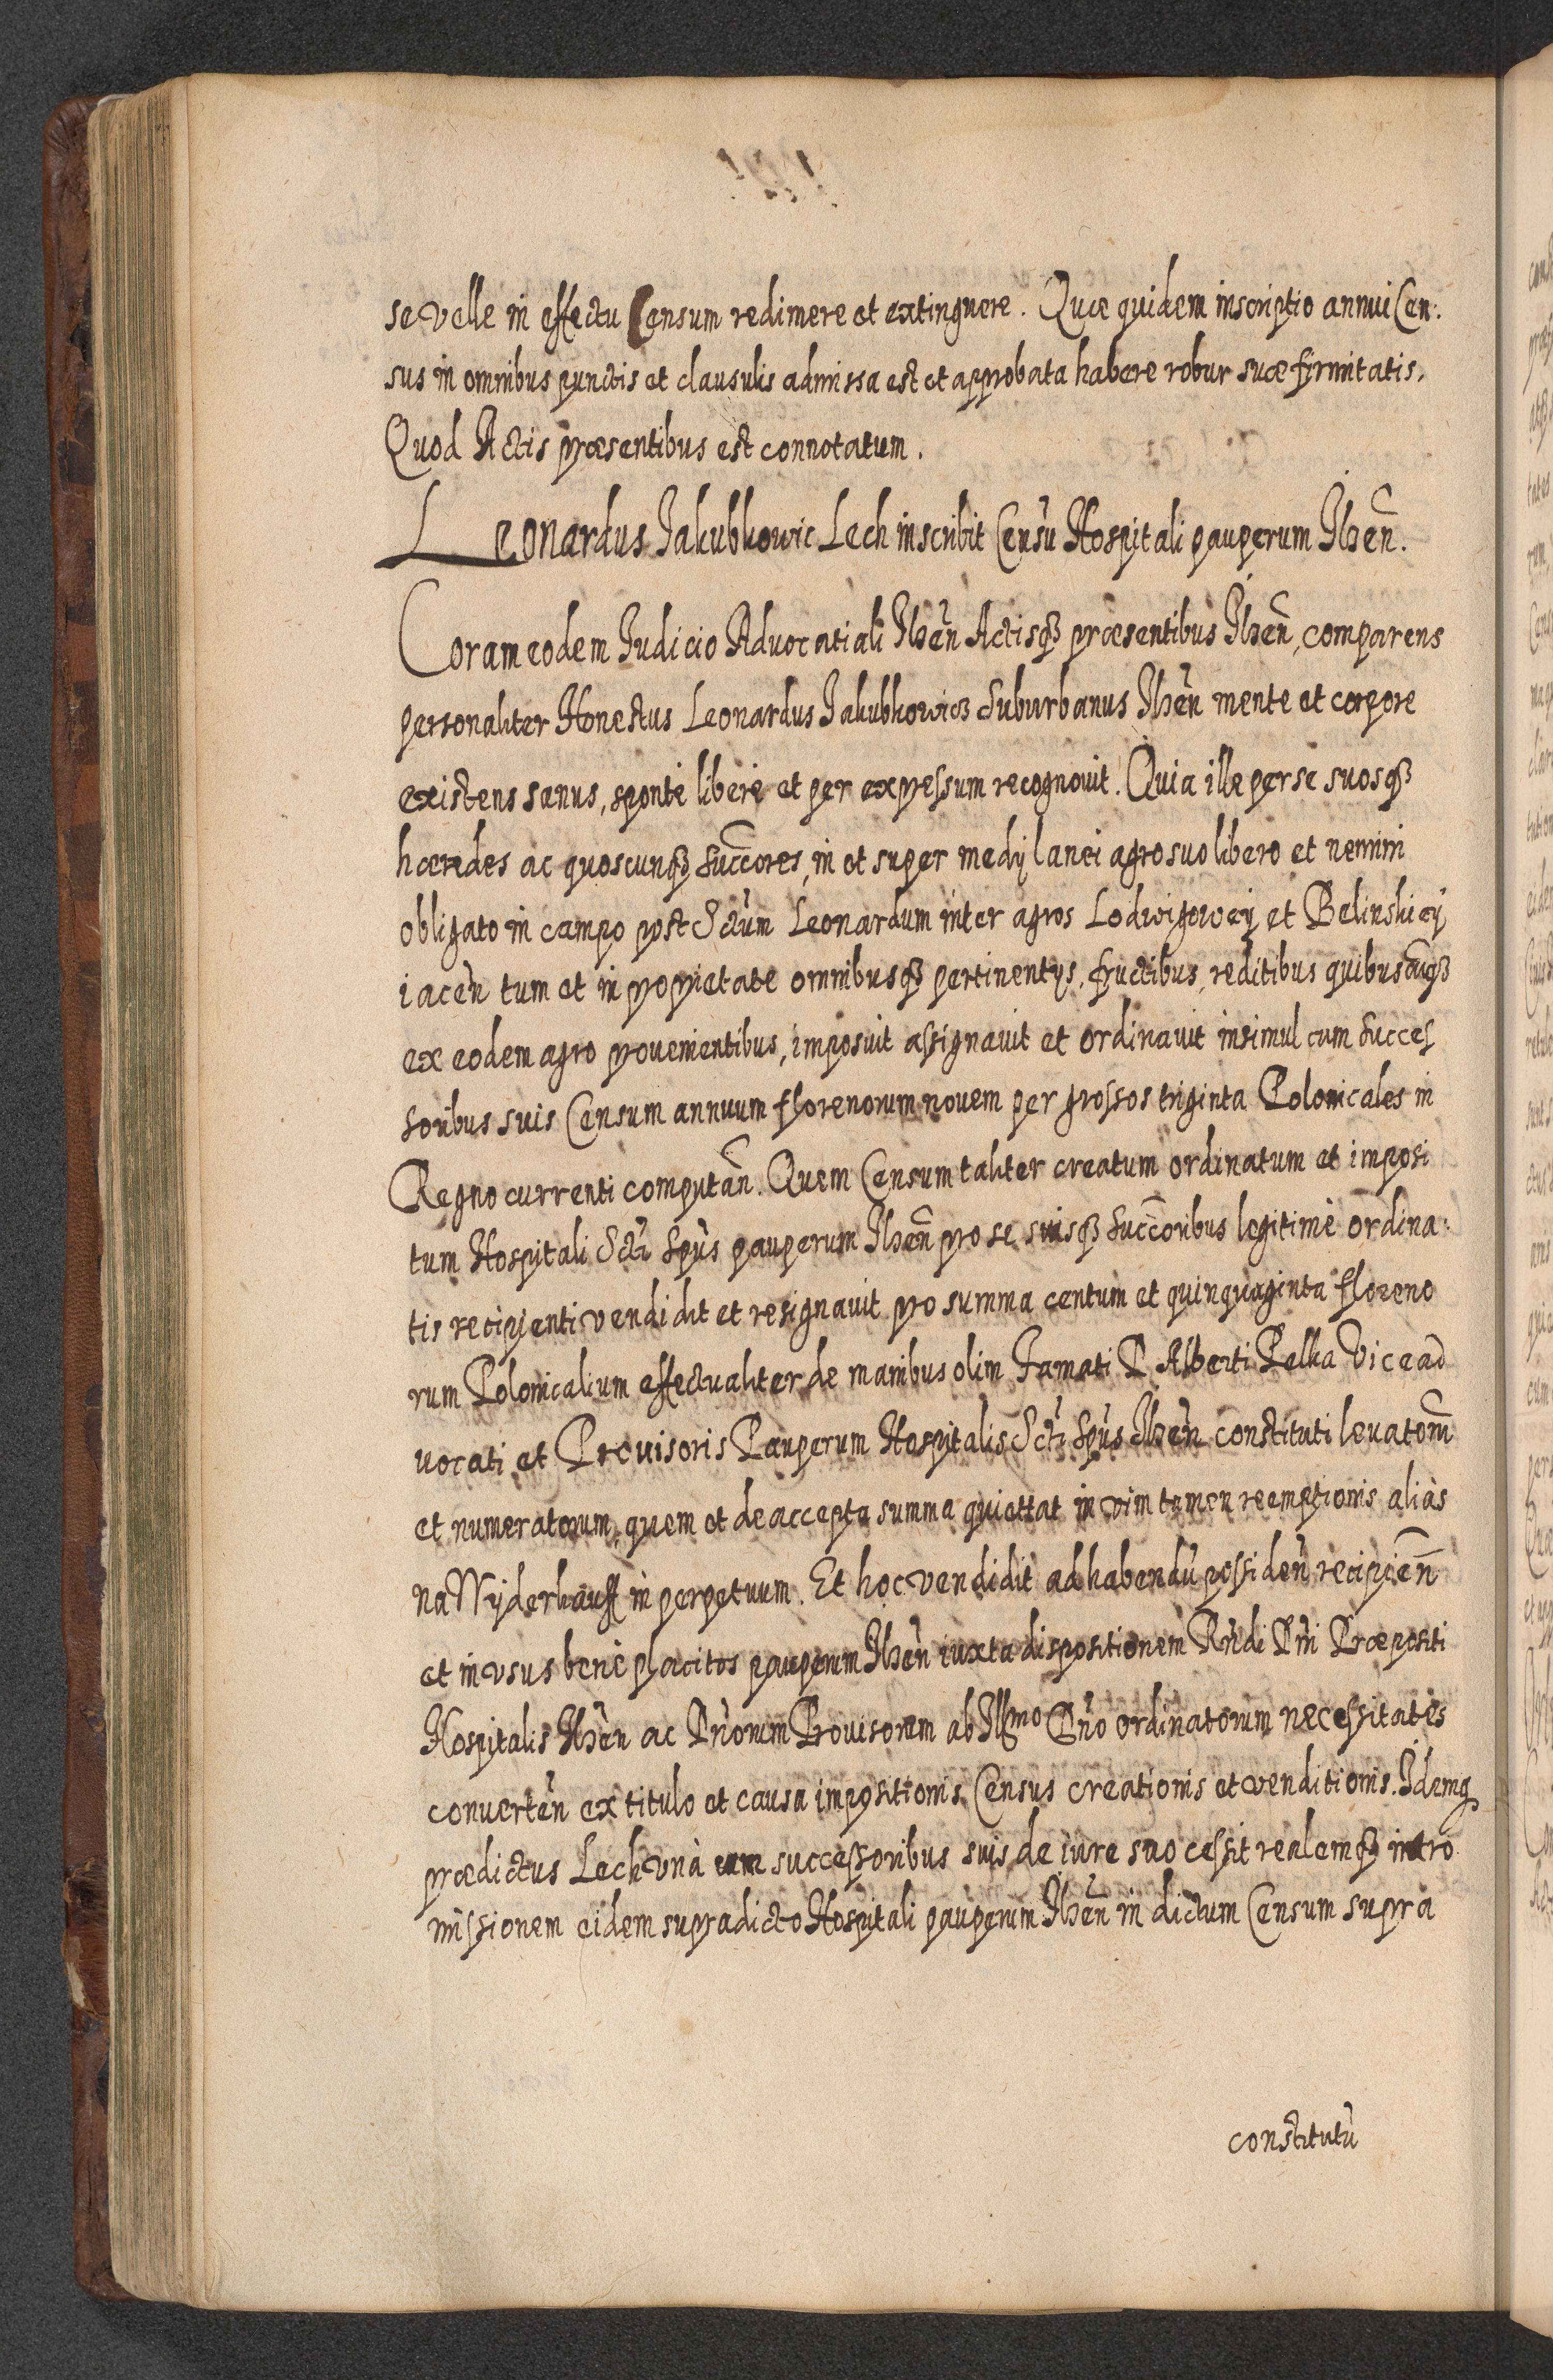 se velle in effectu Censum redimere et extinguere. Quæ quidem inscriptio annui Cen:
sus in omnibus punctis et clausulis admissa est et approbata habere robur suæ firmitatis,
Quod Actis præsentibus est connotatum.
Leonardus Jakubkowic Lech inscribit Censũ Hospitali pauperum Ilzeñ.
Coram eodem Iudicio Aduocatiali Ilzeñ Actisqȝ præsentibus Ilzeñ, comparens
personaliter Honestus Leonardus Jakubkowicz Suburbanus Ilzeñ mente et corpore
existens sanus, sponte libere et per expressum recognouit. Quia ille per se suosqȝ
hæredes ac quoscunqȝ succores, in et super medij lanei agro suo libero et nemini
obligato in campo post Sctum Leonardum inter agros Lodwigowey et Belinskiey
iaceñ tum et in proprietate omnibusqȝ pertinentys, fructibus, reditibus quibuscuqȝ
ex eodem agro prouenientibus, imposuit assignauit et ordinauit insimul cum succes
soribus suis Censum annuum florenorum nouem per grossos triginta Polonicales in
Regno currenti computañ. Quem Censum taliter creatum ordinatum et imposi
tum Hospitali Scti Spũs pauperum Ilzeñ pro se suisqȝ succoribus legitimè ordina:
tis recipienti vendidit et resignauit pro summa centum et quinquaginta floreno
rum Polonicalium effectualiter de manibus olim Famati P. Alberti Pelka Vicead
uocati et Prouisoris Pauperum Hospitalis Scti Spũs Ilzeñ constituti leuatorũ
et numeratorum, quem et de accepta summa quiettat in vim tamen reemptionis aliàs
na Wyderkauff in perpetuum. Et hoc vendidit ad habendũ possideñ recipieñ
et in vsus benè placitos pauperum Ilzeñ iuxta dispositionem Rñdi Dñi Præpositi
Hospitalis Ilzeñ ac Dñorum Prouisorum ab Illmo Dño ordinatorum necessitates
conuerteñ ex titulo et causa impositionis Census creationis et venditionis. Idemq
prædictus Lech vnà cum successoribus suis de iure suo cessit realemqȝ intro
missionem eidem supradicto Hospitali pauperum Ilzeñ in dictum Censum supra
constitutũ